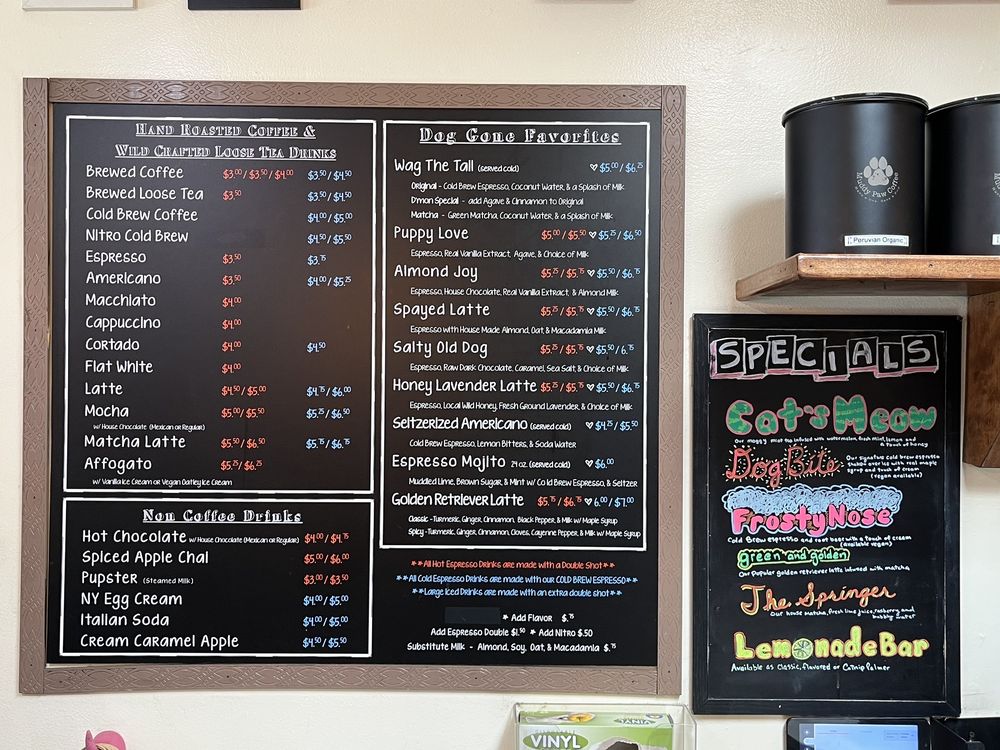 Hand Roasted Coffee &
Wild Crafted Loose Tea Drinks
Brewed Coffee $3.00/$3.50/$4.00 $3.50/$4.50
Brewed Loose Tea $3.50 $3.50/$4.50
Cold Brew Coffee $4.00/$5.00
Nitro Cold Brew $4.50/$5.50
Espresso $3.50 $3.75
Americano $3.50 $4.00/$5.25
Macchiato $4.00
Cappuccino $4.00
Cortado $4.00 $4.50
Flat White $4.00
Latte $4.50/$5.00 $4.75/$6.00
Mocha $5.00/$5.50 $5.25/$6.50
w/ House Chocolate (Mexican or Regular)
Matcha Latte $5.50/$6.50 $5.75/$6.75
Affogato $5.25/$6.25
w/ Vanilla Ice Cream or Vegan Oatley Ice Cream
Non Coffee Drinks
Hot Chocolate w/ House Chocolate (Mexican or Regular) $4.00/$4.75
Spiced Apple Chai $5.00/$6.00
Pupster (Steamed Milk) $3.00/$3.50
NY Egg Cream $4.00/$5.00
Italian Soda $4.00/$5.00
Cream Caramel Apple $4.50/$5.50
Dog Gone Favorites
Wag The Tail (served cold) ♡ $5.00/$6.25
Original - Cold Brew Espresso, Coconut Water, & a Splash of Milk
D'mon Special - add Agave & Cinnamon to Original
Matcha - Green Matcha, Coconut Water, & a Splash of Milk
Puppy Love $5.00/$5.50 ♡ $5.25/$6.50
Espresso, Real Vanilla Extract, Agave, & Choice of Milk
Almond Joy $5.25/$5.75 ♡ $5.50/$6.75
Espresso, House Chocolate, Real Vanilla Extract, & Almond Milk
Spayed Latte $5.25/$5.75 ♡ $5.50/$6.75
Espresso with House Made Almond, Oat, & Macadamia Milk
Salty Old Dog $5.25/$5.75 ♡ $5.50/6.75
Espresso, Raw Dark Chocolate, Caramel, Sea Salt, & Choice of Milk
Honey Lavender Latte $5.25/$5.75 ♡ $5.50/$6.75
Espresso, Local Wild Honey, Fresh Ground Lavender, & Choice of Milk
Seltzerized Americano (served cold) ♡ $4.25/$5.50
Cold Brew Espresso, Lemon Bitters, & Soda Water
Espresso Mojito 24 oz. (served cold) ♡ $6.00
Muddled Lime, Brown Sugar, & Mint w/ Cold Brew Espresso, & Seltzer
Golden Retriever Latte $5.75/$6.75 ♡ 6.00/$7.00
Classic - Turmeric, Ginger, Cinnamon, Black Pepper, & Milk w/ Maple Syrup
Spicy - Turmeric, Ginger, Cinnamon, Cloves, Cayenne Pepper, & Milk w/ Maple Syrup
**All Hot Espresso Drinks are made with a Double Shot**
**All Cold Espresso Drinks are made with our COLD BREW ESPRESSO**
**Large Iced Drinks are made with an extra double shot**
* Add Flavor $.75
Add Espresso Double $1.50 * Add Nitro $.50
Substitute Milk - Almond, Soy, Oat, & Macadamia $.75
Muddy Paw Coffee
Peruvian Organic
SPECIALS
Cat's Meow
Our muggy mint tea infused with watermelon, fresh mint, lemon and
a touch of honey
Dog Bite
Our signature cold brew espresso
shaken over ice with real maple
syrup and touch of cream
(vegan available)
Frosty Nose
Cold Brew espresso and root beer with a touch of cream
(available vegan)
green and golden
Our popular golden retriever latte infused with matcha
The Springer
Our house matcha, fresh lime juice, rasberry, and
bubbly water
Lemonade Bar
Available as Classic, flavored or Catnip Palmer
VINYL
TANIA